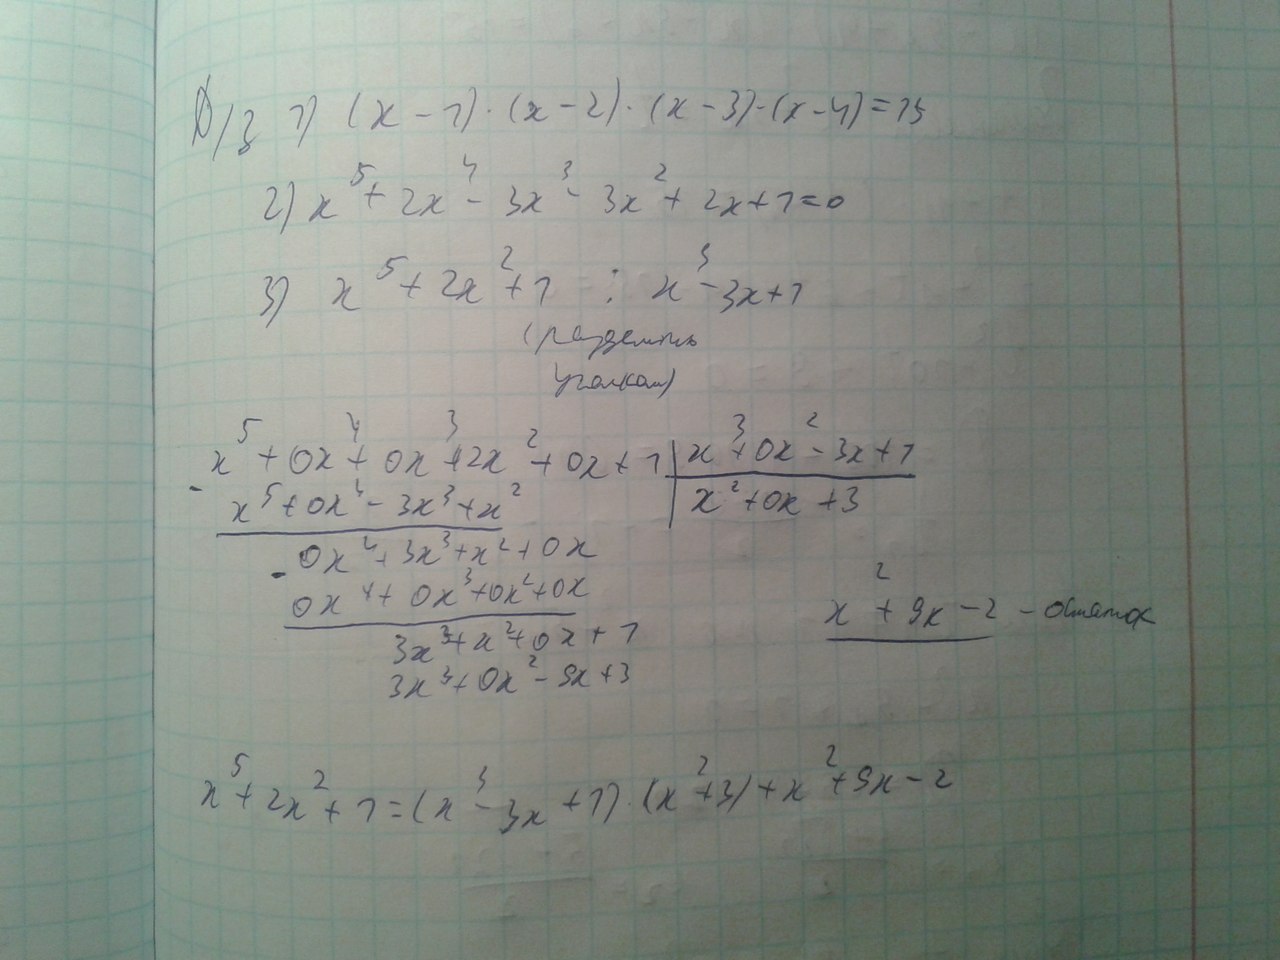 Д/з 1) (x - 1) · (x - 2) · (x - 3) · (x - 4) = 15
2) x⁵ + 2x⁴ - 3x³ - 3x² + 2x + 1 = 0
3) x⁵ + 2x² + 1 : x³ - 3x + 1
(разделить
уголком)
x⁵ + 0x⁴ + 0x³ + 2x² + 0x + 1 | x³ + 0x² - 3x + 1
- x⁵ + 0x⁴ - 3x³ + x² | x² + 0x + 3
0x⁴ + 3x³ + x² + 0x
- 0x⁴ + 0x³ + 0x² + 0x
x² + 9x - 2 - остаток
3x³ + x² + 0x + 1
3x³ + 0x² - 9x + 3
x⁵ + 2x² + 1 = (x³ - 3x + 1) · (x² + 3) + x² + 9x - 2